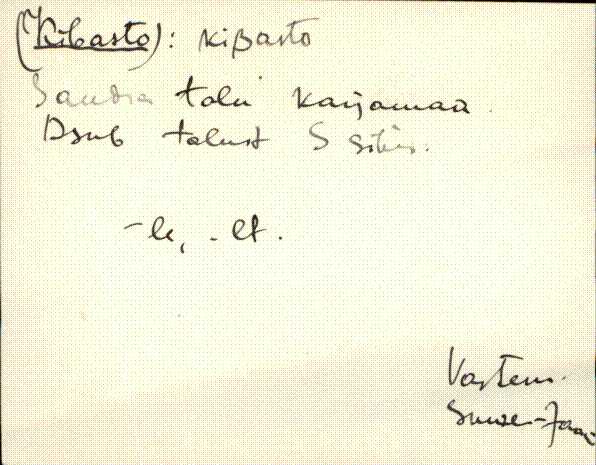 (Kibasto): kiʙasto
Sandra talu karjamaa.
Asub talust S
-le, -lt.
Vastem.
Suure-Jaani